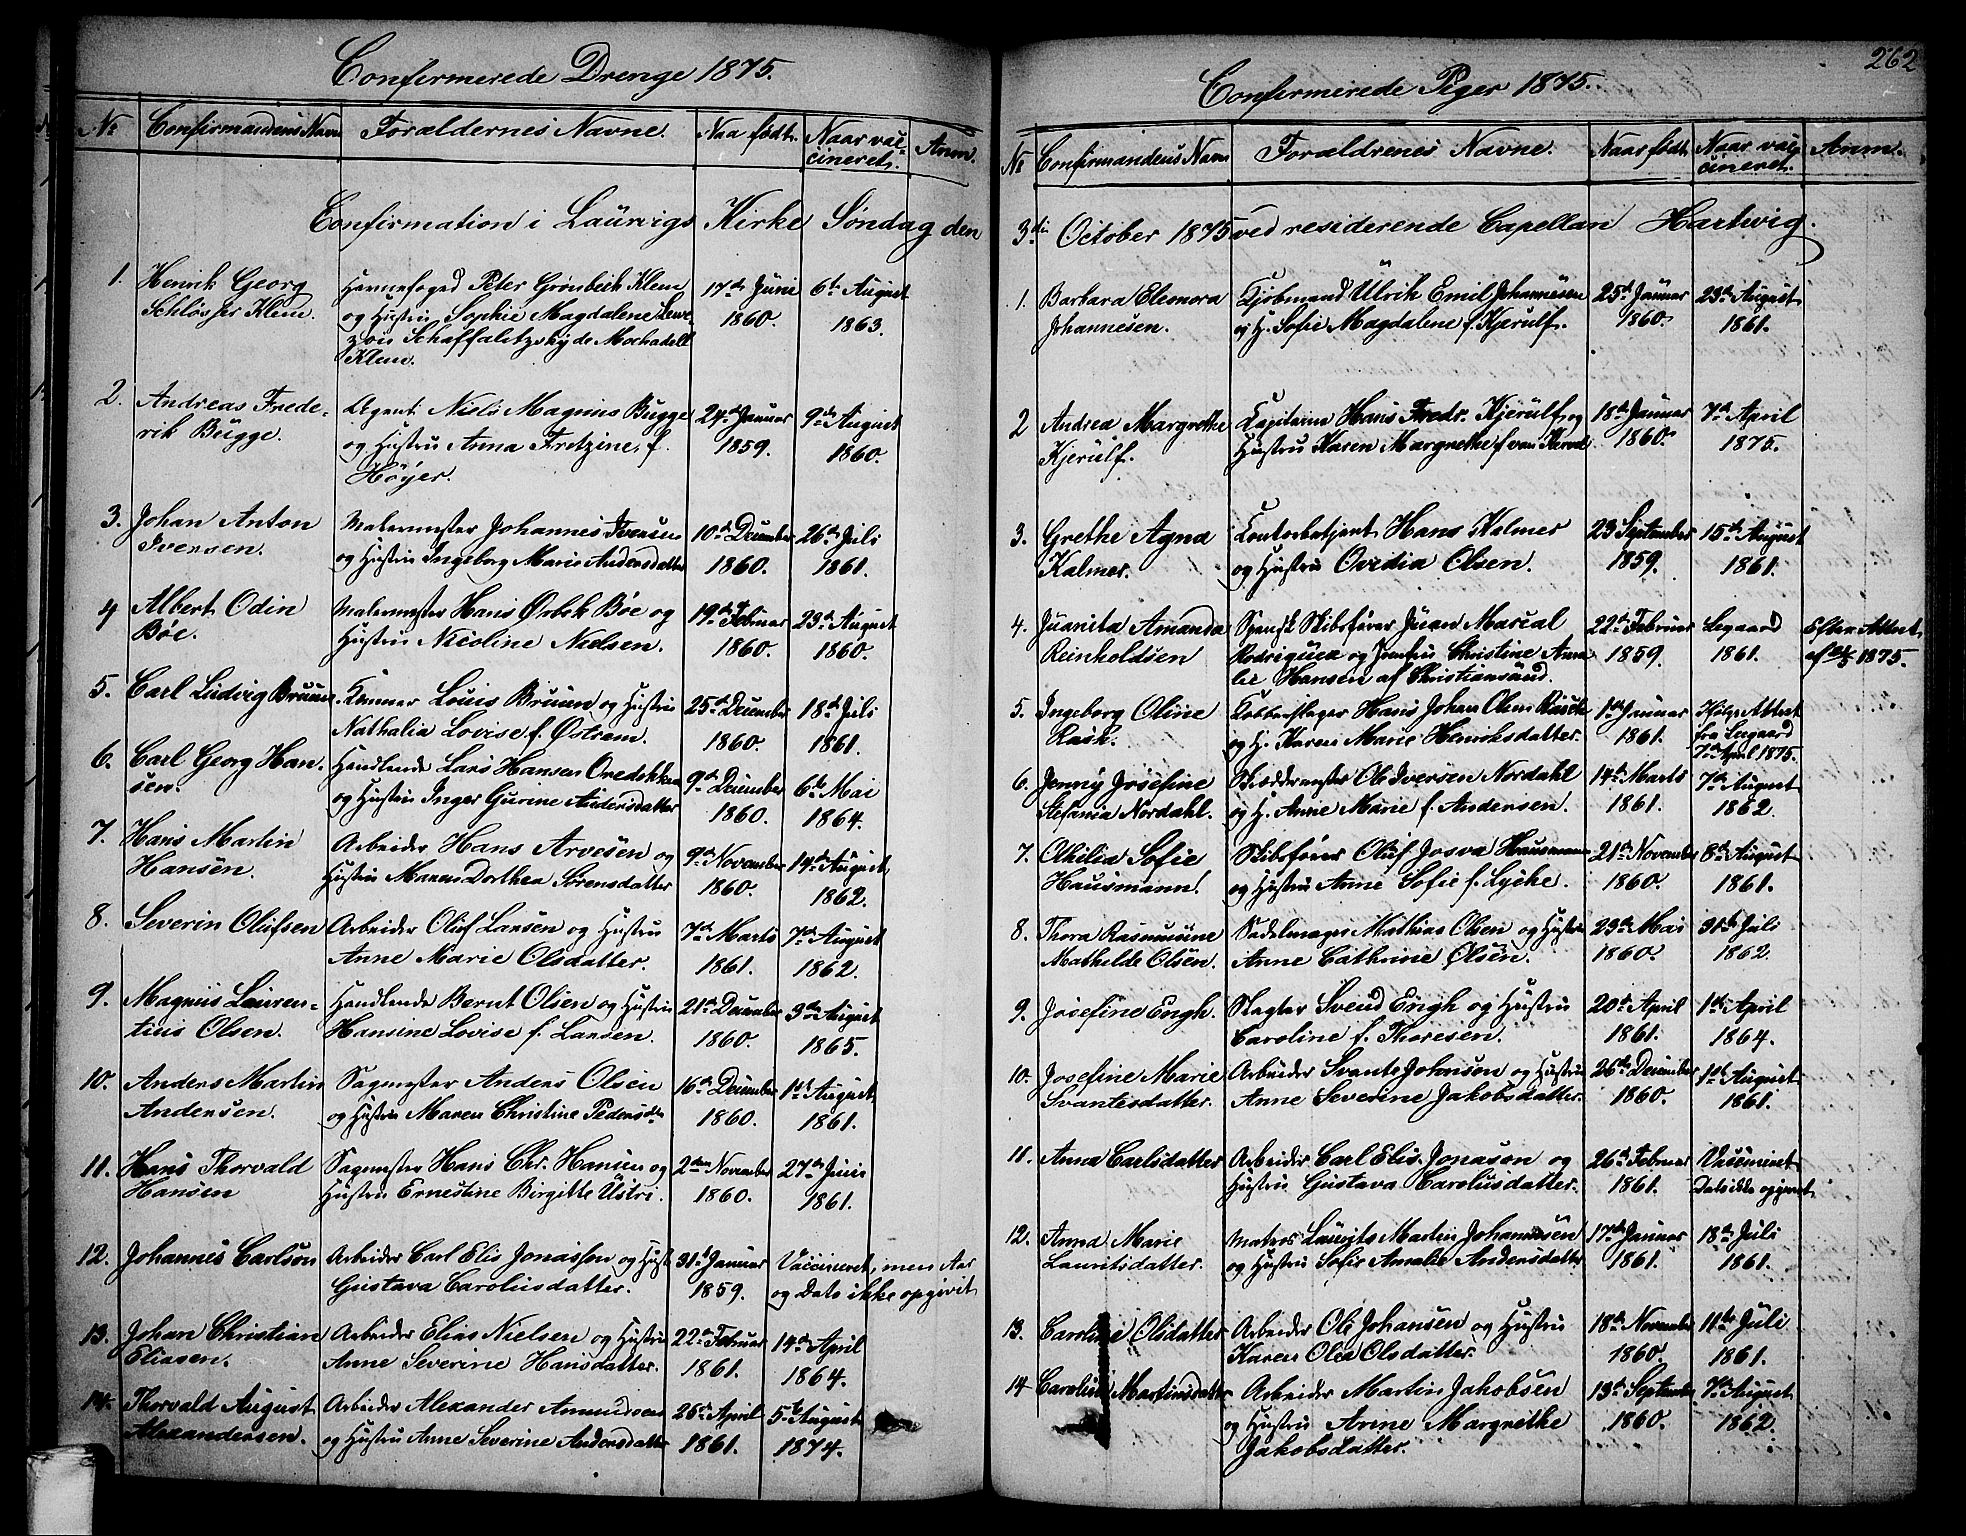 Confirmerede Drenge 1875.
No Confirmandens Navn Forældernes Navne. Naa født. Naar vac-
cineret. Anm.
Confirmation i Laurvigs Kirke Søndag den
1. Henrik Georg Havnefoged Peter Grønbeck Klem 17de Juni 6te August
Schlösser Klem. og Hustru Sophie Magdalene 1860. 1863.
von Schaffalitzky de
Klem.
2. Andreas Frede- Agent Niels Magnus Bugge 24de Januar 9de August
rik Bugge. og Hustru Anna Fretzine, f. 1859. 1860.
Høyer.
3. Johan Anton Malermester Johannes Iversen 10de December 26de Juli
Iversen. og Hustru Ingeborg Marie Andersdatter 1860. 1861.
4 Albert Odin Malermester Hans Ørbek Bøe og 19de Februar 23de August
Bøe. Hustru Nicoline Nielsen. 1860. 1860.
5. Carl Ludvig Bruun. Kæmner Louis Bruun og Hustru 25de December 18de Juli
Nathalia Lovise f. Østrem. 1860. 1861.
6. Carl Georg Han- Handlende Lars Hansen 9de December 6te Mai
sen. og Hustru Inger Gurine Andersdatter 1860. 1864.
7. Hans Martin Arbeider Hans Arvesen og 9de November 14de August
Hansen. Hustru Maren Dorthea Sørensdatter 1860. 1862.
8. Severin Olufsen Arbeider Oluf Larsen og Hustru 7de Marts 7de August
Anne Marie Olsdatter. 1861. 1862.
9. Magnus Lauren- Handlende Bernt Olsen og Hustru 21de December 3die August
tius Olsen. Hansine Lovise f. Larsen. 1860. 1865.
10. Anders Martin Sagmester Anders Olsen 16de December 1ste August
Andersen. og Hustru Maren Christine Pedersdtr 1860. 1861.
11. Hans Thorvald Sagmester Hans Chr. Hansen og 2den November 27de Juni
Hansen Hustru Ernestine Birgitte Ustri. 1860. 1861.
12. Johannes Carlson Arbeider Carl Elis Jonasson og Hust. 31te Januar Vaccineret, men Aar
Gustava Carolusdatter. 1859. og Dato ikke opgivet
13. Johan Christian Arbeider Elias Nielsen og Hustru 22de Februar 14de April
Eliasen. Anne Severine Hansdatter. 1861. 1864.
14. Thorvald August Arbeider Alexander Amundsen 26de April 5te August
Alexandersen. og Hustru Anne Severine Andersdatter 1861. 1874.
262
Confirmerede Piger 1875.
No Confirmandens Navn Forældrenes Navne. Naar født. Naar vac-
cineret. Anm.
3die October 1875 ved residerende Capellan Hartwig.
1. Barbara Eleonora Kjøbmand Ulrik Emil Johannesen 25de Januar 23de August
Johannesen. og H. Sofie Magdalene f. Kjerulf. 1860. 1861.
2 Andrea Margrethe Kapitaine Hans Fredr. Kjerulf og 18de Januar 7de April
Kjerulf. Hustru Karen Margrethe f. van 1860. 1875.
3. Grethe Agna Contorbetjent Hans Kalmer 23 September 15de August
Kalmer. og Hustru Ovidia Olsen. 1859. 1861.
4. Juanita Amanda Spansk Skibsfører Juan Marcal 22de Februar Legaard Efter Attest
Reinholdsen Rodriguea og Jomfru Christine Ama- 1859. 1861. af 1875.
lie Hansen af Christiansund.
5. Ingeborg Oline Kobberslager Hans Johan Olsen Rask 1ste Januar Ifølge Attest
Rask. og H. Karen Marie Henriksdatter. 1861. fra Legaard
7de April 1875.
6. Jenny Josefine Skræddermester Ole Iversen Nordahl 14de Marts 7de August
Stefania Nordahl. og H. Anne Marie f. Andersen. 1861. 1862.
7. Othilia Sofie Skibsfører Oluf Josva Hausmann 21de November 8de August
Hausmann. og Hustru Anne Sofie f. Lycke. 1860. 1861.
8. Thora Rasmusine Sadelmager Mathias Olsen og Hustru 23de Mai 31te Juli
Mathilde Olsen. Anne Cathrine Olsen. 1860. 1862.
9. Josefine Engh. Slagter Svend Engh og Hustru 20de April 1ste April
Caroline f. Thoresen. 1861. 1864.
10. Josefine Marie Arbeider Svante Johnson og Hustru 26de December 1ste August
Svantesdatter. Anne Severine Jakobsdatter. 1860. 1861.
11. Anna Carlsdatter Arbeider Carl Elis. Jonason og 26de Februar Vaccineret
Hustru Gustava Carolusdatter. 1861. Dato ikke opgivet
12. Anna Marie Matros Laurits Martin Johannesen 17de Januar 18de Juli
Lauritsdatter. og Hustru Sofie Amalie Andersdatter 1861. 1861.
13. Caroline Olsdatter Arbeider Ole Johansen og Hustru 18de November 11te Juli
Karen Olea Olsdatter. 1860. 1861.
14 Caroline Martinsdatter Arbeider Martin Jakobsen 13de September 7de August
og Hustru Anne Margrethe 1860. 1862.
Jakobsdatter.